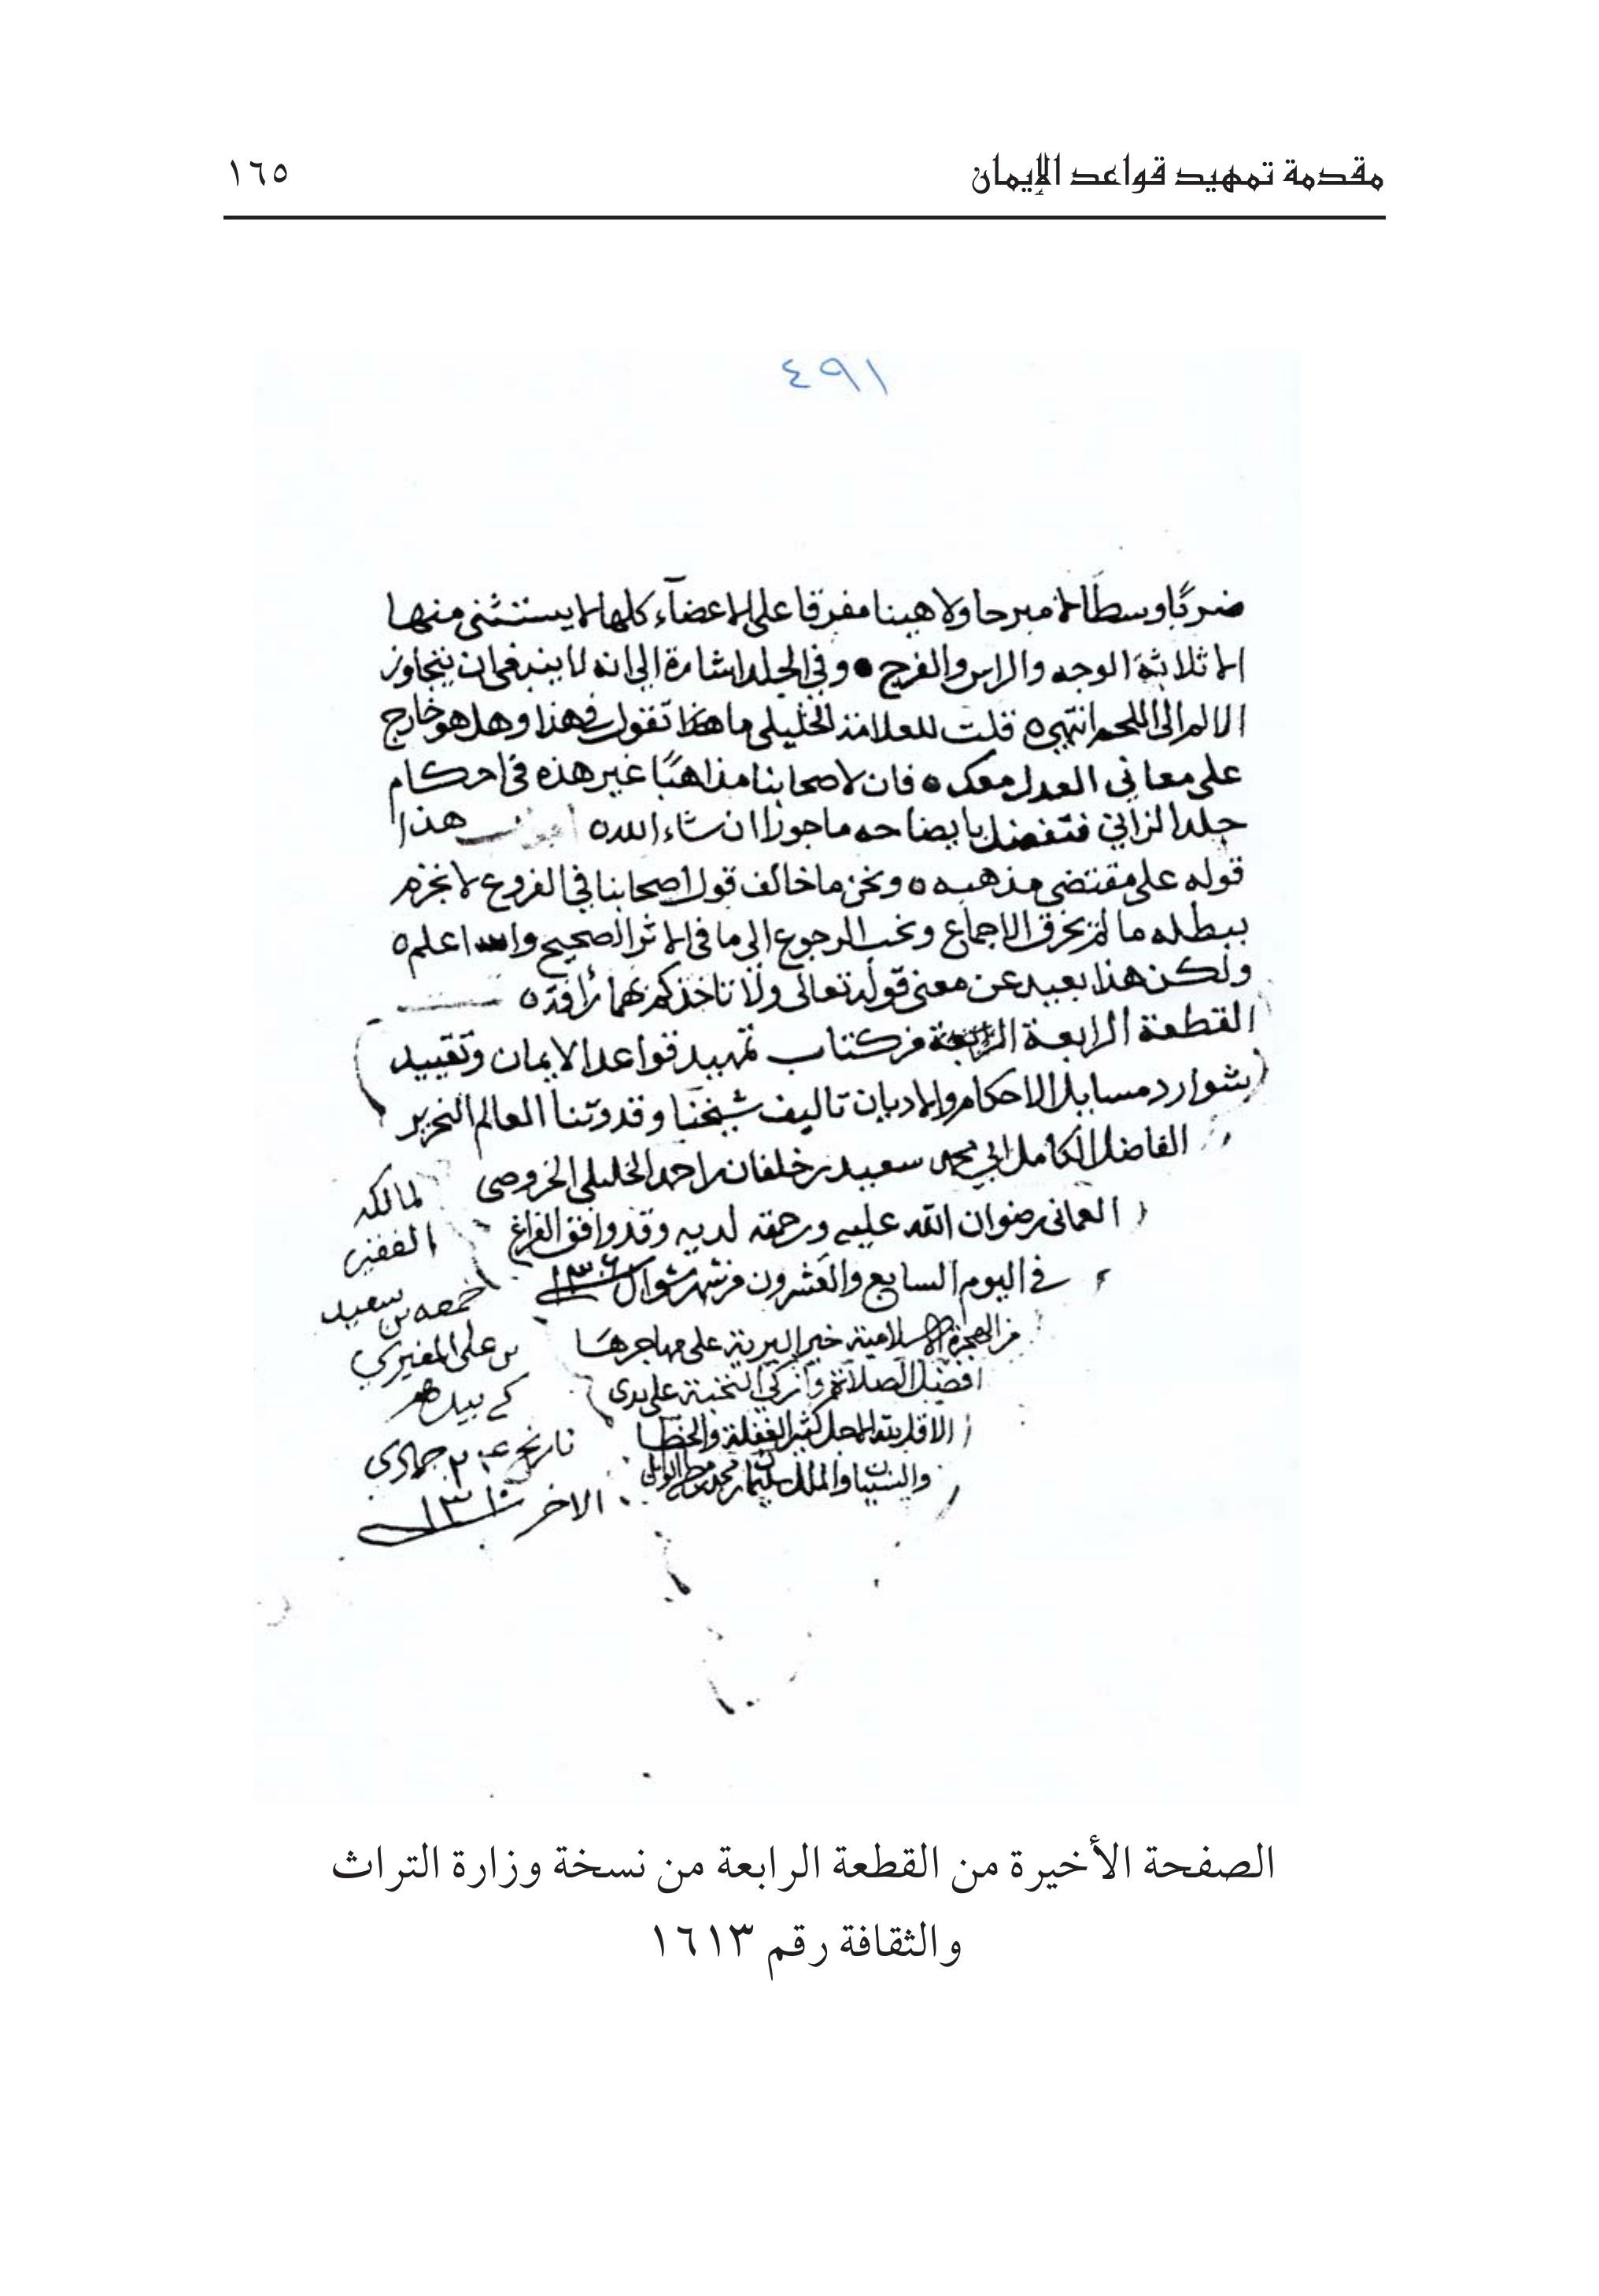 مقدمة تمهيد قواعد الإيمان ١٦٥
٤٩١
ضربًا وسطا لا مبرحا ولا هينا مفرقا على الاعضآء كلها لا يستثنى منها
الا ثلاثة الوجه والراس والفرج • وفي الجلد اشارة الى انه لا ينبغي ان يتجاوز
الالم الى اللحم انتهى ه قلت للعلامة الخليلي ما هذا تقول في هذا وهل هو خارج
على معاني العدل معك ه فان لاصحابنا مذاهبًا غير هذه في احكام
جلد الزاني فتفضل بايضاحه ماجورا ان شاء الله ه هذا
قوله على مقتضى مذهبه ه ونحن ما خالف قول اصحابنا في الفروع لا نجزم
ببطله ما لم يخرق الاجماع ونحب الرجوع الى ما في الاثر الصحيح والله اعلم ه
ولكن هذا بعيد عن معنى قوله تعالى ولا تاخذكم بهما رأفة ه
القطعة الرابعة من كتاب تمهيد قواعد الايمان وتقييد
شوارد مسايل الاحكام والاديان تاليف شيخنا وقدوتنا العالم النحرير
الفاضل الكامل ابي محمد سعيد بن خلفان بن احمد الخليلي الخروصي
العماني رضوان الله عليه ورحمته لديه وقد وافق الفراغ
في اليوم السابع والعشرون من شهر شوال
من الهجرة الاسلامية خير البرية على مهاجرها
افضل الصلاة وازكى التحية على يدي
الاقل كثير الغفلة والخطا
والنسيان سليمان بن محمد بن مطر
لمالكه
الفقير
جمعه بن سعيد
بن علي المغيري
بيده
تاريخ جمادى
الاخر
الصفحة الأخيرة من القطعة الرابعة من نسخة وزارة التراث
والثقافة رقم ١٦١٣